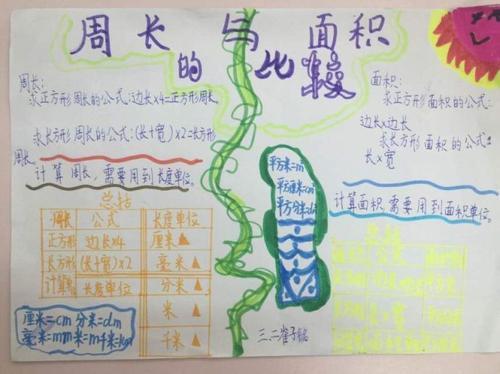 周长与面积
的比较
周长:
求正方形周长的公式:边长×4=正方形周长
求长方形周长的公式:(长+宽)×2=长方形
周长。
计算周长,需要用到长度单位。
总结
周长 公式 长度单位
正方形 边长×4 厘米▲
长方形 (长+宽)×2 毫米▲
长度单位 分米▲
米▲
千米▲
厘米=cm 分米=dm
毫米=mm 米=m 千米=km
平方米=m
平方厘米=cm
平方分米=dm
面积:
求正方形面积的公式:
边长×边长
求长方形面积的公式=
长×宽
计算面积需要用到面积单位。
总结
三、二